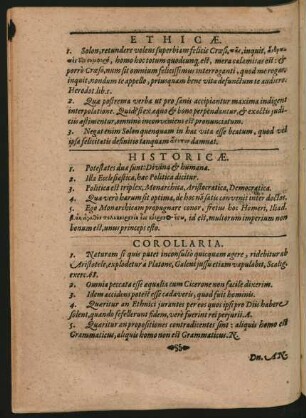 ETHICÆ.
1. Solon, retundere volens superbiam felicis Crœsi, inquit,
homo hoc totum quodcunq́ est, mera calamitas est: &
porrò Crœso, num sit omnium felicissimus interroganti, quod me roga-
inquit, nondum te appello, priusquam bene vita defunctum te audiero.
Herodot. lib. 1.
2. Quæ postrema verba ut pro sanis accipiantur maxima indigent
interpolatione. Quidꝗ́ sit ex æquo & bono perpendantur, & exacto judi-
ciis æstimentur, omnino inconvenienter pronunciata.
3. Negat enim Solon quenquam in hac vita esse beatum, quod vel
ipso felicitatis definitio tanquam damnat.
HISTORICÆ.
1. Potestates duæ sunt: Divina & humana.
2. Illa Ecclesiastica, hæc Politica dicitur.
3. Politica est triplex, Monarchica, Aristocratica, Democratica.
4. Quæ verò harum sit optima, de hoc nō satis convenit inter doctos.
5. Ego Monarchicam propugnare conor, fretus hoc Homeri, Iliad.
id est, multorum imperium non
bonum est, unus princeps esto.
COROLLARIA.
1. Naturam si quis putet inconsultò quicquam agere, ridebitur ab
Aristotele, explodetur à Platone, Galeni jussu etiam vapulabit, Scalig.
exerc.
2. Omnia peccata esse æqualia cum Cicerone non facile dixerim.
3. Idem accidens potest esse in cadavere, quod fuit hominis.
4. Quæritur an Ethnici jurantes per suos quos ipsi pro Diis habere
solent, quando fefellerunt fidem, verè fuerint rei perjurii? A.
5. Quæritur an propositiones contradicentes sint: aliquis homo est
Grammaticus, aliquis homo non est Grammaticus. N.